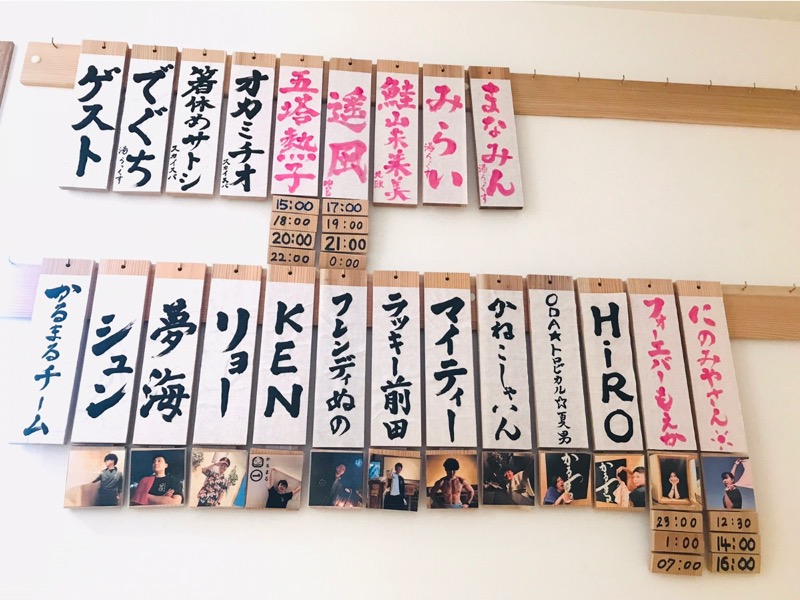 ゲスト
でぐち
湯らっくす
箸休めサトシ
スカイスパ
オカミチオ
スカイスパ
五塔熱子
遥岡
鮭山未菜美
みらい
湯らっくす
まなみん
湯らっくす
15:00
18:00
20:00
22:00
17:00
19:00
21:00
0:00
かるまるチーム
シュン
夢海
リョー
KEN
フレンディぬの
ラッキー前田
マイティー
かねこしゃいん
ODA☆トロピカル☆夏男
HiRO
フォーエバーもえか
にのみやさん
かるまる
かるまる
かるまる
23:00
1:00
07:00
12:30
14:00
16:00